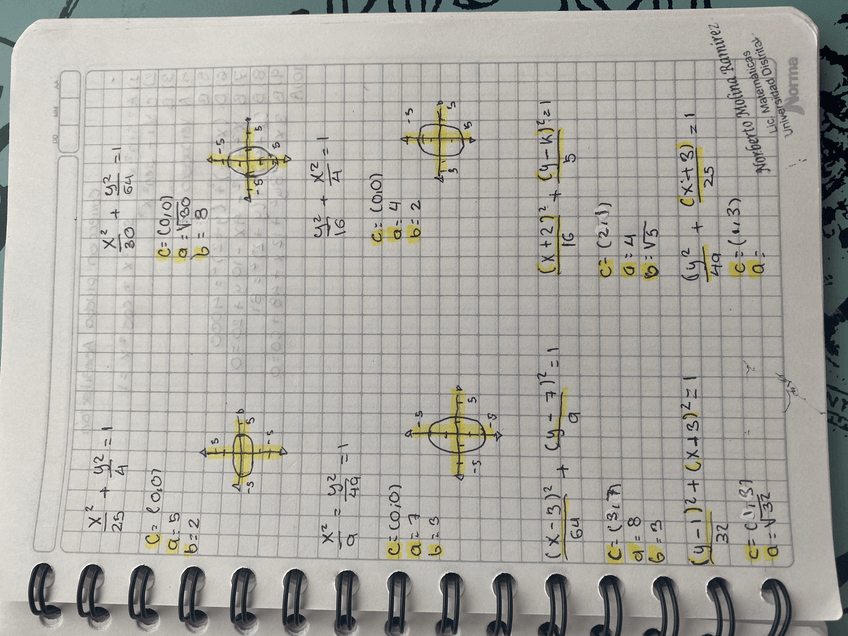 x²/25 + y²/4 = 1
c = (0,0)
a = 5
b = 2
5
-5
5
-5
x²/30 + y²/64 = 1
c = (0,0)
a = √30
b = 8
-5
5
-5
5
x²/9 = y²/49 = 1
c = (0,0)
a = 7
b = 3
-5
5
-5
5
y²/16 + x²/4 = 1
c = (0,0)
a = 4
b = 2
-5
5
5
(x-3)²/64 + (y-7)²/9 = 1
c = (3,7)
a = 8
b = 3
(x+2)²/16 + (y-k)²/5 = 1
c = (2,1)
a = 4
b = √5
(y-1)²/32 + (x+3)² = 1
a = √32
(y²/49 + (x+3)/25 = 1
a =
Norberto Molina Ramirez
Lic. Matemáticas
Universidad Distrital
Norma